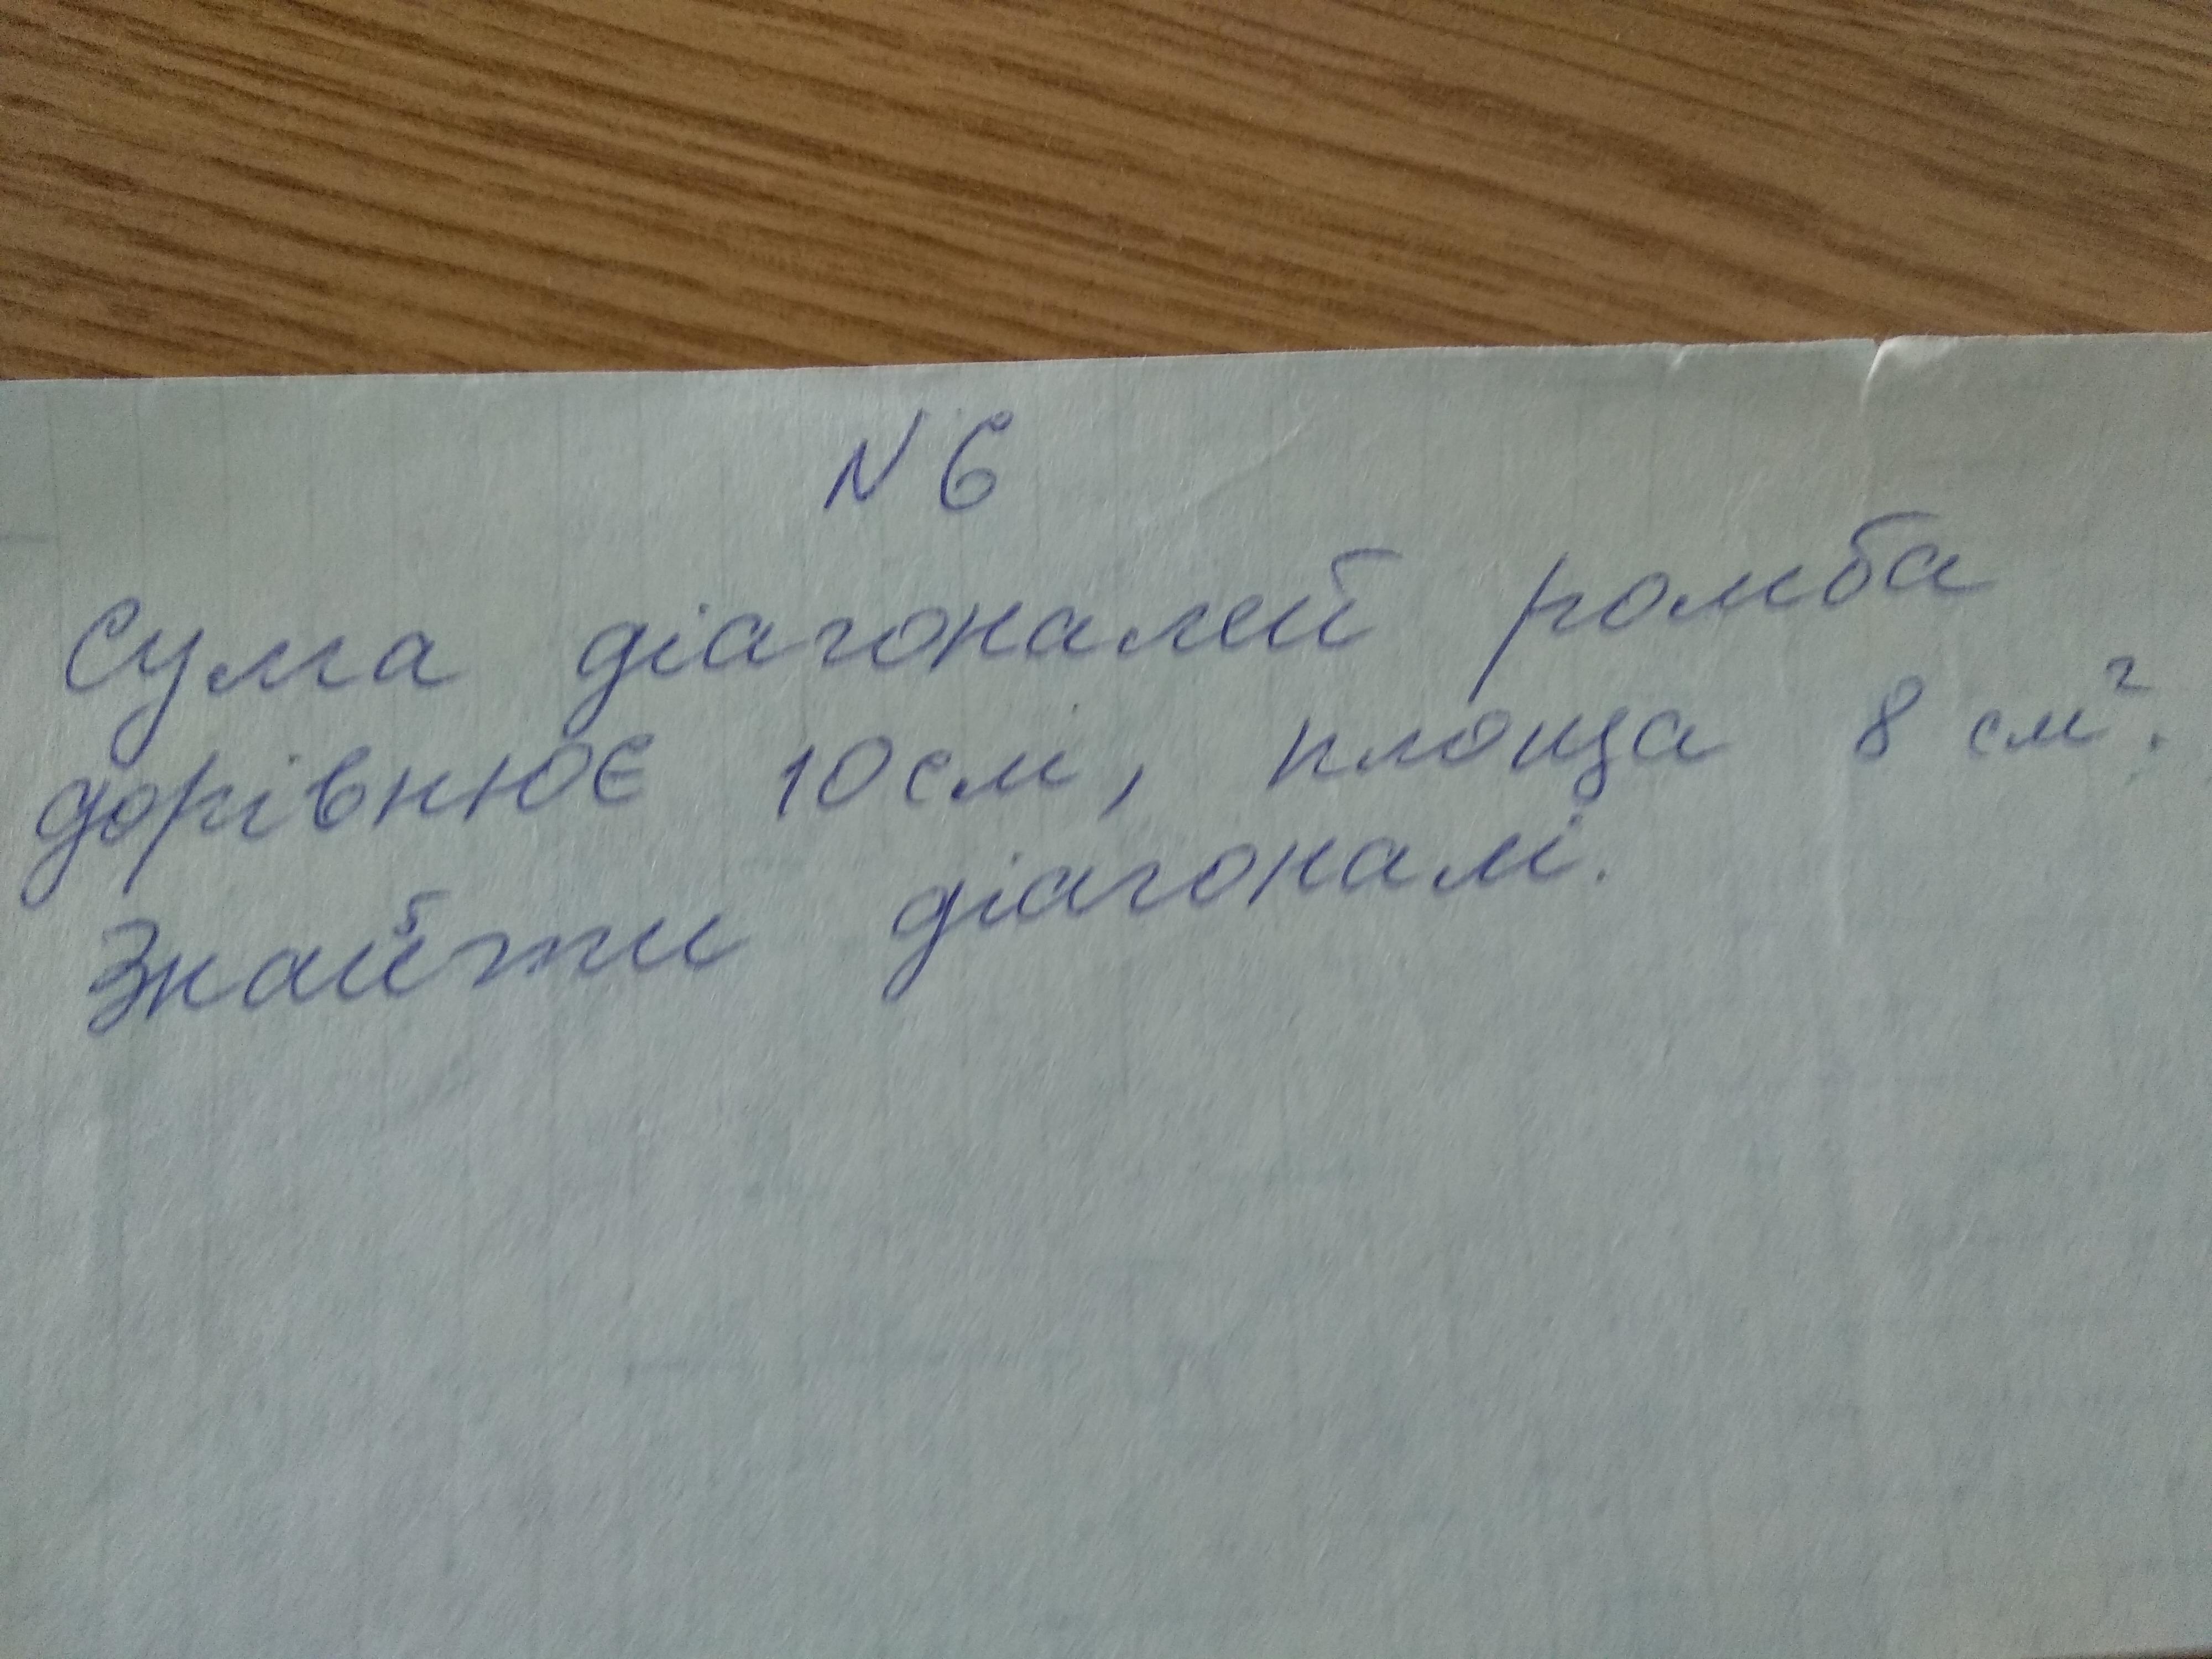 N 6
Сума діагоналей ромба
дорівнює 10 см, площа 8 см².
Знайти діагоналі.